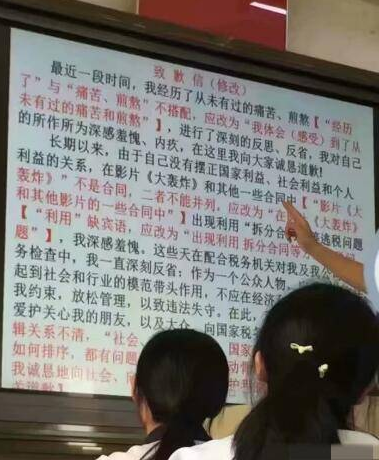 致歉信（修改）
最近一段时间，我经历了从未有过的痛苦、煎熬【“经历
了”与“痛苦、煎熬”不搭配，应改为“我体会（感受）到了从
未有过的痛苦和煎熬”】，进行了深刻的反思、反省，我对自己
的所作所为深感羞愧、内疚，在这里我向大家诚恳道歉！
长期以来，由于自己没有摆正国家利益、社会利益和个人
利益的关系，在影片《大轰炸》和其他一些合同中【“影片《大
轰炸》”不是合同，二者不能并列。应改为“在《大轰炸》
和其他影片的一些合同中”】出现利用“拆分合同 逃税问题
【“利用”缺宾语，应改为“出现利用 拆分合同等
题”】，我深感羞愧。这些天在配合税务机关对我及我公
务检查中，我一直深刻反省：作为一个公众人物，
起到社会和行业的模范带头作用，不应在经济
我约束，放松管理，以致违法失守。在此，
爱护关心我的朋友，以及大众，向国家税务
辑关系不清，“社会、 国家
如何排序，都有问题
我诚恳地向社会、
关道歉】